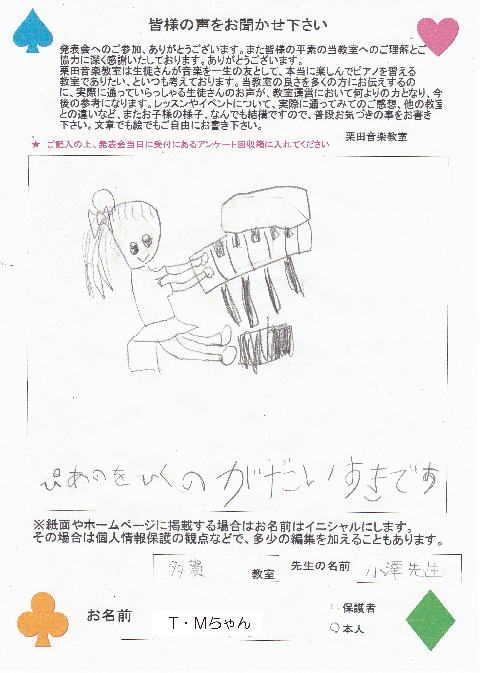 皆様の声をお聞かせ下さい
発表会へのご参加、ありがとうございます。また皆様の平素の当教室へのご理解とご
協力に深く感謝いたしております。ありがとうございます。
栗田音楽教室は生徒さんが音楽を一生の友として、本当に楽しんでピアノを習える
教室でありたい、といつも考えております。当教室の良さを多くの方にお伝えするの
に、実際に通っていらっしゃる生徒さんのお声が、教室運営において何よりの力となり、今
後の参考になります。レッスンやイベントについて、実際に通ってみてのご感想、他の教室
との違いなど、またお子様の様子、なんでも結構ですので、普段お気づきの事をお書き
下さい。文章でも絵でもご自由にお書き下さい。
栗田音楽教室
★ ご記入の上、発表会当日に受付にあるアンケート回収箱に入れてください
ぴあのをひくのがだいすきです
※紙面やホームページに掲載する場合はお名前はイニシャルにします。
その場合は個人情報保護の観点などで、多少の編集を加えることもあります。
多賀 教室 先生の名前 小澤先生
お名前 T・Mちゃん
保護者
本人